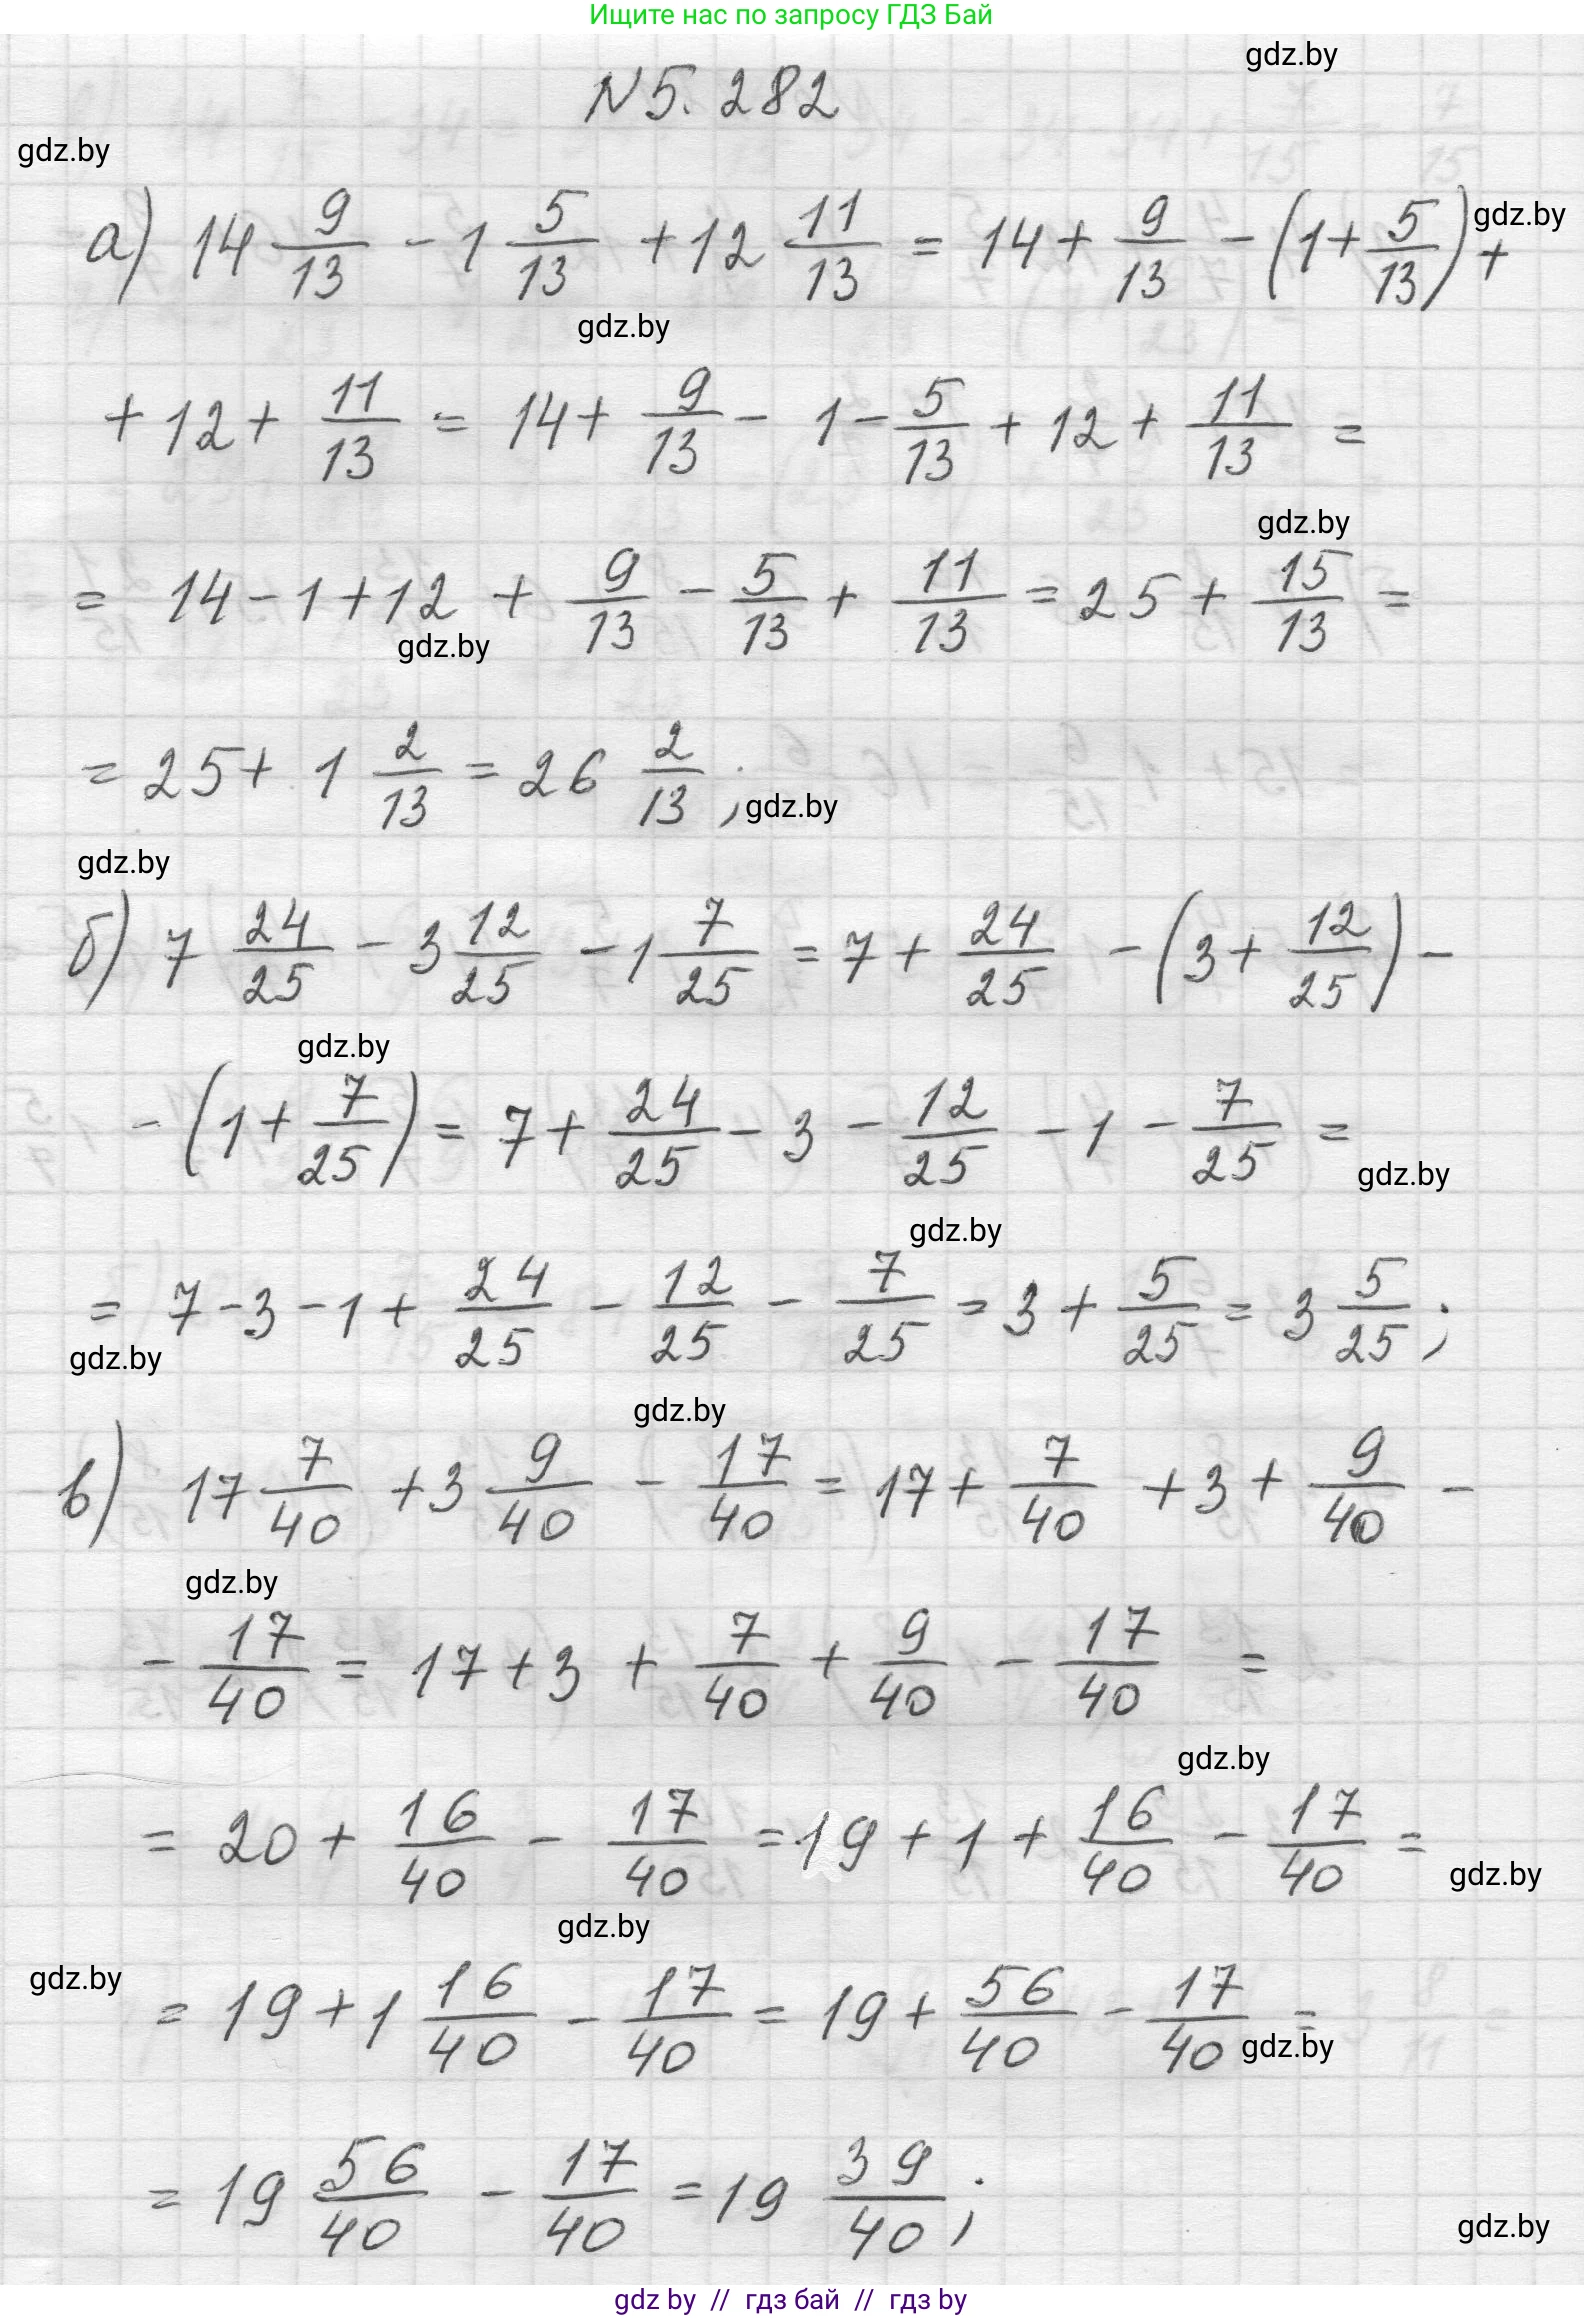 Ищите нас по запросу ГДЗ Бай
gdz.by
N 5. 282
gdz.by
а) 14 9/13 - 1 5/13 + 12 11/13 = 14 + 9/13 - (1 + 5/13) +
gdz.by
gdz.by
+ 12 + 11/13 = 14 + 9/13 - 1 - 5/13 + 12 + 11/13 =
gdz.by
= 14 - 1 + 12 + 9/13 - 5/13 + 11/13 = 25 + 15/13 =
gdz.by
= 25 + 1 2/13 = 26 2/13 ;
gdz.by
gdz.by
б) 7 24/25 - 3 12/25 - 1 7/25 = 7 + 24/25 - (3 + 12/25) -
gdz.by
- (1 + 7/25) = 7 + 24/25 - 3 - 12/25 - 1 - 7/25 =
gdz.by
gdz.by
= 7 - 3 - 1 + 24/25 - 12/25 - 7/25 = 3 + 5/25 = 3 5/25 ;
gdz.by
gdz.by
в) 17 7/40 + 3 9/40 - 17/40 = 17 + 7/40 + 3 + 9/40 -
gdz.by
- 17/40 = 17 + 3 + 7/40 + 9/40 - 17/40 =
gdz.by
= 20 + 16/40 - 17/40 = 19 + 1 + 16/40 - 17/40 =
gdz.by
gdz.by
gdz.by
= 19 + 1 16/40 - 17/40 = 19 + 56/40 - 17/40 =
gdz.by
= 19 56/40 - 17/40 = 19 39/40 ;
gdz.by
gdz by // гдз бай // гдз by